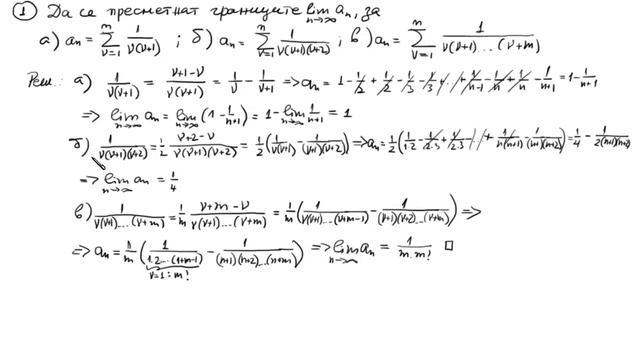 ① Да се пресметнат границите lim_{n→∞} a_n, за
а) a_n = Σ_{ν=1}^{n} 1/(ν(ν+1)) ; б) a_n = Σ_{ν=1}^{n} 1/(ν(ν+1)(ν+2)) ; в) a_n = Σ_{ν=1}^{n} 1/(ν(ν+1)...(ν+m))
Реш.: а) 1/(ν(ν+1)) = (ν+1-ν)/(ν(ν+1)) = 1/ν - 1/(ν+1) ⇒ a_n = 1 - 1/2 + 1/2 - 1/3 + 1/3 - ... + 1/(n-1) - 1/n + 1/n - 1/(n+1) = 1 - 1/(n+1)
⇒ lim_{n→∞} a_n = lim_{n→∞} (1 - 1/(n+1)) = 1 - lim_{n→∞} 1/(n+1) = 1
б) 1/(ν(ν+1)(ν+2)) = 1/2 (ν+2-ν)/(ν(ν+1)(ν+2)) = 1/2 (1/(ν(ν+1)) - 1/((ν+1)(ν+2))) ⇒ a_n = 1/2 (1/(1.2) - 1/(2.3) + 1/(2.3) - ... + 1/(n(n+1)) - 1/((n+1)(n+2))) = 1/4 - 1/(2(n+1)(n+2))
⇒ lim_{n→∞} a_n = 1/4
в) 1/(ν(ν+1)...(ν+m)) = 1/m (ν+m-ν)/(ν(ν+1)...(ν+m)) = 1/m (1/(ν(ν+1)...(ν+m-1)) - 1/((ν+1)(ν+2)...(ν+m))) ⇒
⇒ a_n = 1/m (1/(1.2...(1+m-1)) - 1/((n+1)(n+2)...(n+m))) ⇒ lim_{n→∞} a_n = 1/(m.m!) □
ν=1: m!